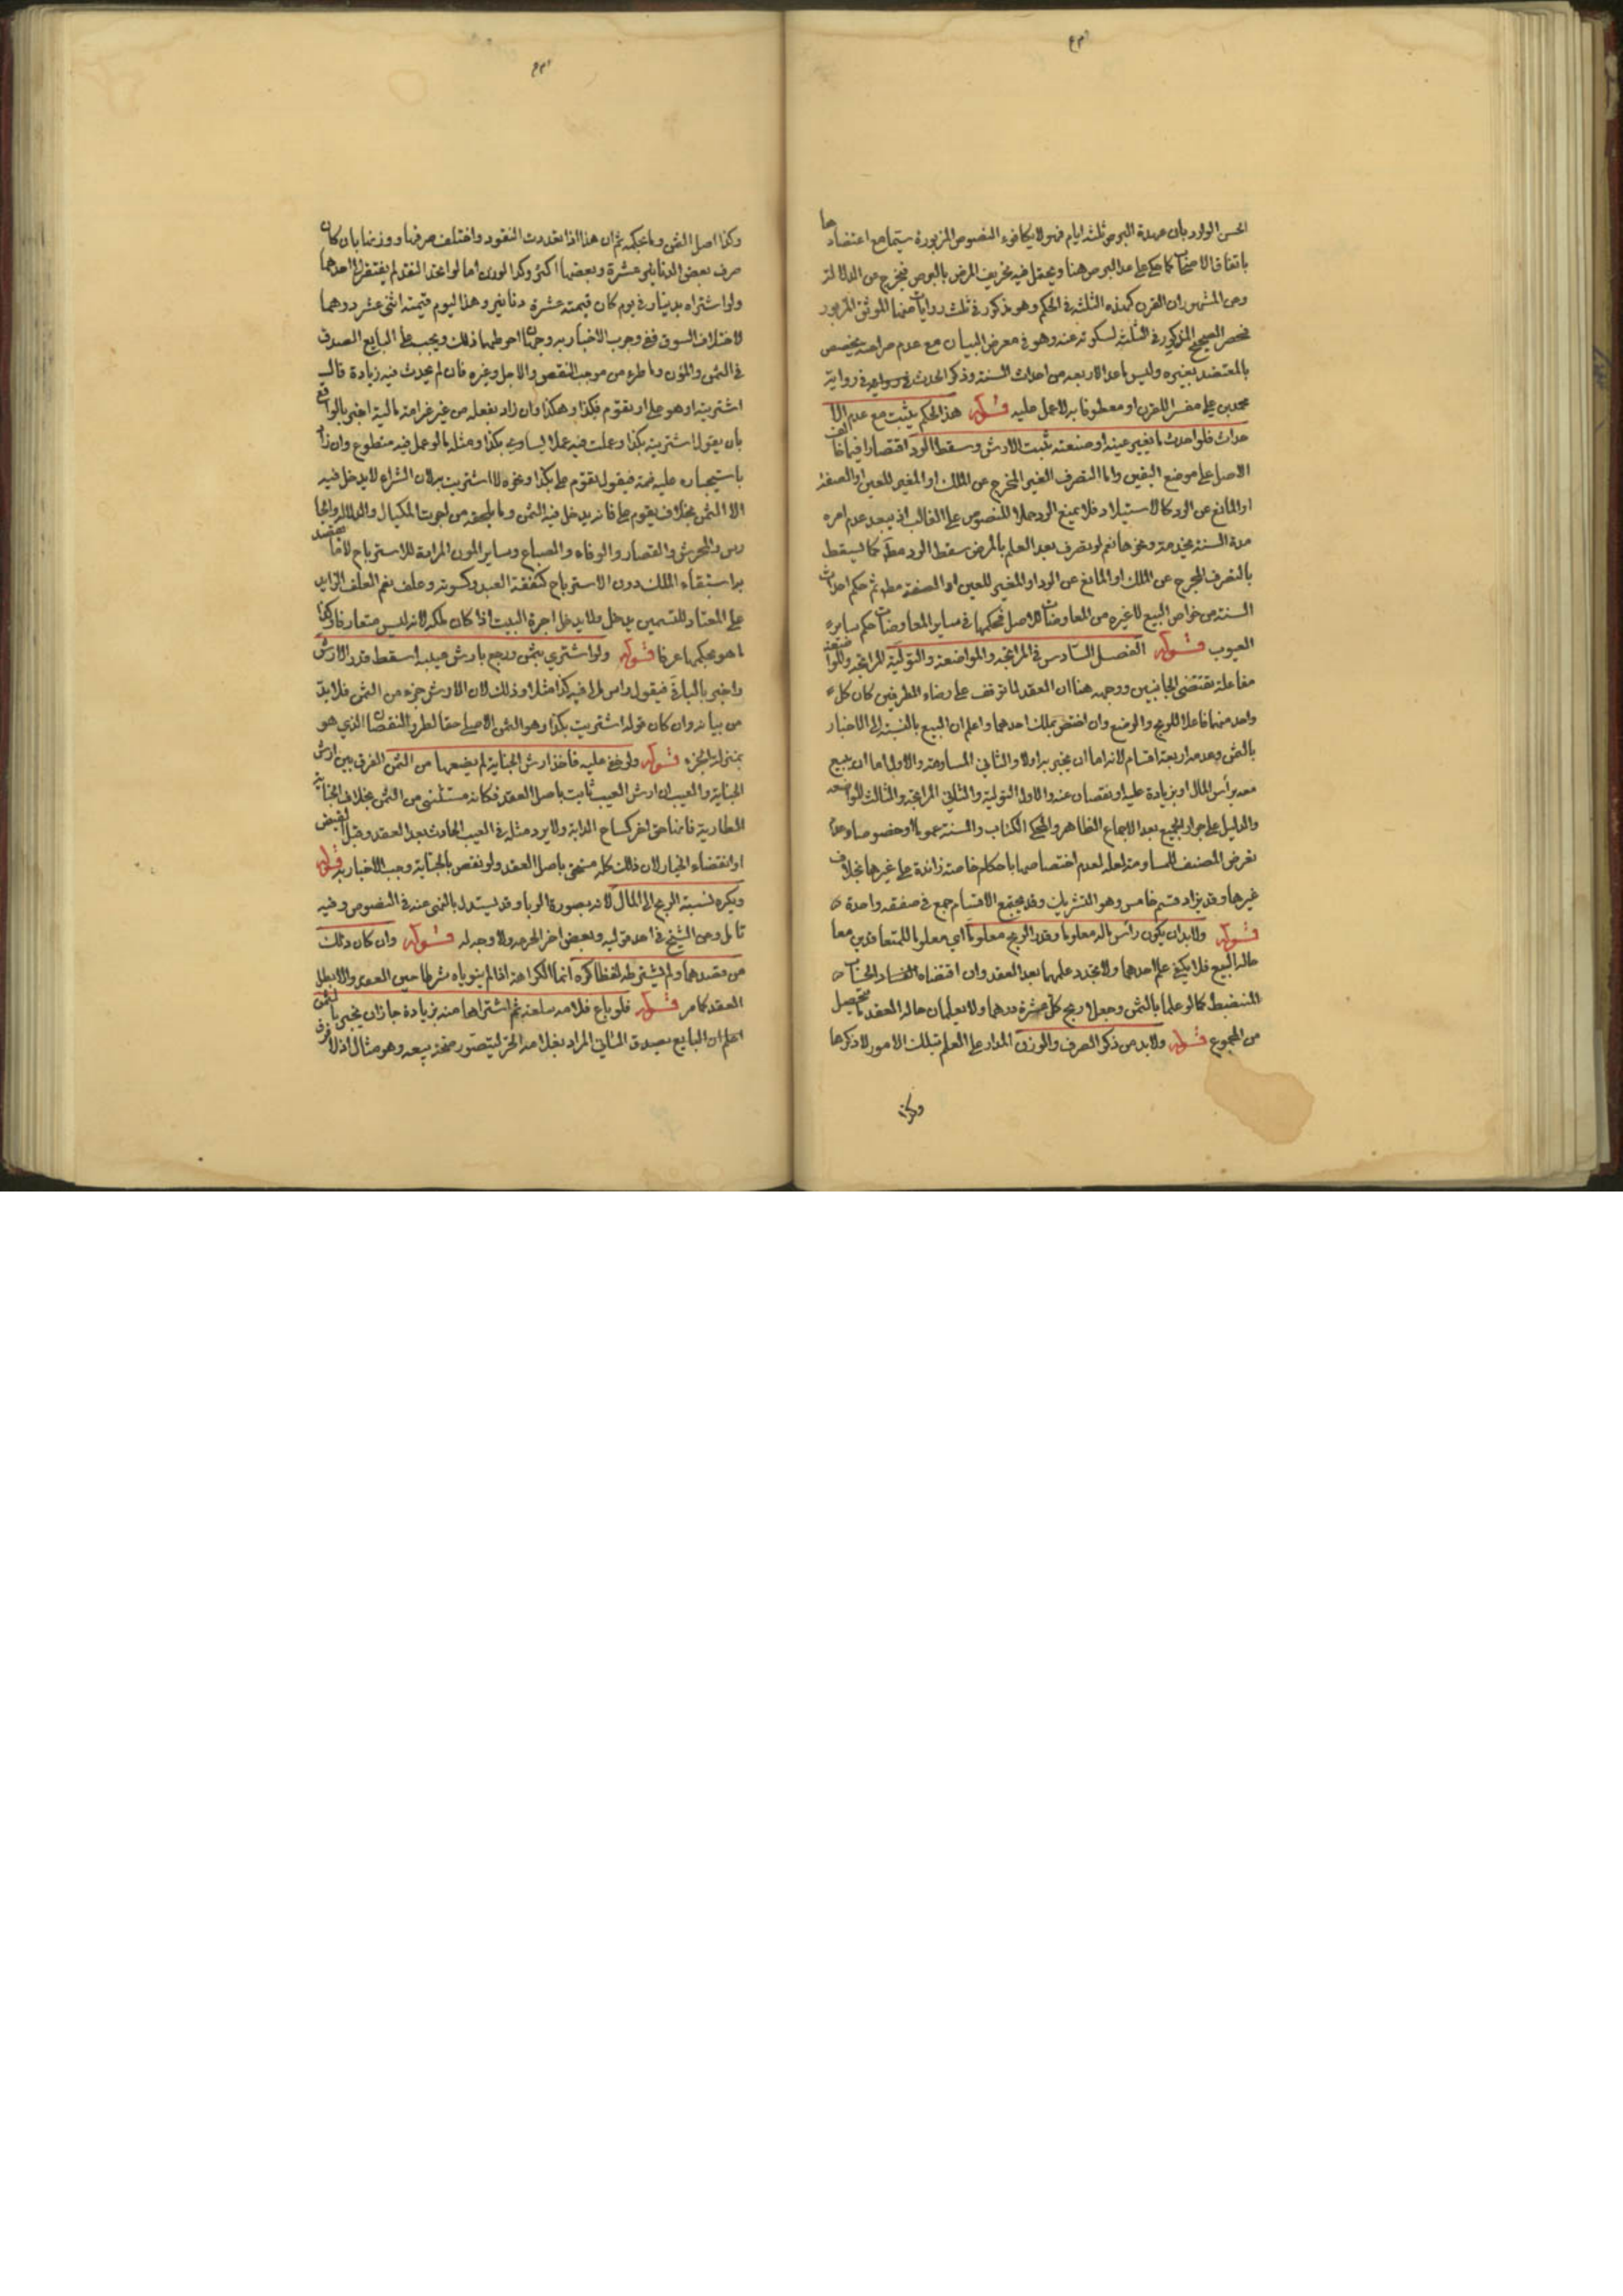 الحسن الوارد بان عهدة البرص ثلثة ايام فهو لا يكافوء النصوص المزبورة سيما مع اعتضادها
باتفاق الاصحاب كما حكى على عد البرص هنا ويحتمل فيه تحريف المرض بالبرص فيخرج عن الدلالة
ومن المشهور ان القرن كهذه الثلثة في الحكم وهو مذكور في ثلث روايات منها الموثق المزبور
فحصر الصحيح المذكور في الثلثة لسكوته عنه وهو في معرض البيان مع عدم صراحته يخصص
بالمعتضد بغيره وليس ما عدا الاربعة من احداث السنة وذكر الحدث في رواية
محمد بن علي مفسرا للقرن او معطوفا به لا عمل عليه قوله هذا الحكم يثبت مع عدم الا
حداث فلو احدث ما يغير عينه او صفته يثبت الارش وسقط الرد اقتصارا فيما خالف
الاصل على موضع اليقين واما التصرف الغير المخرج عن الملك او المغير للعين او الصفة
او المانع عن الرد كالاستيلاد فلا يمنع الرد حملا للنصوص على الغالب اذ يبعد عدم امره
مدة السنة بخدمة ونحوها نعم لو تصرف بعد العلم بالمرض سقط الرد مطلقا كما يسقط
بالتصرف المخرج عن الملك او المانع عن الرد او المغير للعين او الصفة مط ثم حكم احداث
السنة من خواص البيع لا غيره من المعاوضات للاصل فحكمها في ساير المعاوضات حكم ساير
العيوب قوله الفصل السادس في المرابحة والمواضعة والتولية المرابحة والمواضعة
مفاعلة تقتضي الجانبين ووجهه هنا ان العقد لما توقف على رضاء الطرفين كان كل
واحد منهما فاعلا للربح والوضع وان اختص بملك احدهما واعلم ان البيع بالنسبة الى الاخبار
بالثمن وعدمه اربعة اقسام لانه اما ان يخبر به اولا والثاني المساومة والاول اما ان يبيع
معه برأس المال او بزيادة عليه او نقصان عنه والاول التولية والثاني المرابحة والثالث المواضعة
والدليل على جواز الجميع بعد الاجماع الظاهر والمحكي الكتاب والسنة عموما وخصوصا وعدم
تعرض المصنف للمساومة لعله لعدم اختصاصها باحكام خاصة زائدة على غيرها بخلاف
غيرها وقد يزاد قسم خامس وهو التشريك وقد يجتمع الاقسام جمع في صفقة واحدة
قوله ولا بد ان يكون رأس ماله معلوما وقدر الربح معلوما اي معلوما للمتعاقدين معا
حالة البيع فلا يكفي علم احدهما ولا تجدد علمهما بعد العقد وان اقتضاه الحساب
المنضبط كما لو علما بالثمن وجعلا ربح كل عشرة درهما ولا يعلمان حالة العقد ما يتحصل
من المجموع قوله ولا بد من ذكر الصرف والوزن المدار على العلم بتلك الامور لا ذكرها
وكذا
وكذا اصل الثمن وما بحكمه ثم ان هذا اذا تعددت النقود واختلف صرفها ووزنها بان كان
صرف بعض الدنانير عشرة وبعضها اكثر وكذا الوزن اما لو اتحد النقد لم يفتقر الى احدهما
ولو اشتراه بدينار في يوم كان قيمته عشرة دنانير وهذا اليوم قيمته اثنى عشر درهما
لاختلاف السوق ففي وجوب الاخبار به وجهان احوطهما ذلك ويجب على البايع الصدق
في الثمن والمؤن وما طرء من موجب النقص والاجل وغيره فان لم يحدث فيه زيادة قال
اشتريته او هو علي او تقوم بكذا وهكذا وان زاد بفعله من غير غرامة مالية اخبر بالواقع
بان يقول اشتريته بكذا وعملت فيه عملا يساوي بكذا ومثله ما لو عمل فيه متطوع وان زاد
باستيجاره عليه ضمه فيقول تقوم علي بكذا ونحوه لا اشتريت به لان الشراء لا يدخل فيه
الا الثمن بخلاف تقوم علي فانه يدخل فيه الثمن وما يلحقه من اجرت المكيال والدلال والحا
رس والمحرس والقصار والرفاء والصباغ وساير المؤن المرادة للاسترباح لا ما يقصد
به استبقاء الملك دون الاسترباح كنفقة العبد وكسوته وعلف نعم العلف الزايد
على المعتاد للتسمين يدخل ولا يدخل اجرة البيت اذا كان ملكه لانه ليس متعارفا وكذا
ما هو بحكمها عرفا قوله ولو اشترى بثمن ورجع بارش عيبه اسقط قدر الارش
واخبر بالباقي فيقول راس مالي فيه كذا مثلا وذلك لان الارش جزء من الثمن فلا بد
من بيانه وان كان قوله اشتريت بكذا وهو الثمن الاصلي حقا لطرو النقصان الذي هو
بمنزلة الجزء قوله ولو جني عليه فاخذ ارش الجناية لم يضعها من الثمن الفرق بين ارش
الجناية والعيب ان ارش العيب ثابت باصل العقد فكانه مستثنى من الثمن بخلاف الجناية
الطارية فانها حق اخر كنتاج الدابة ولا يرد مثله في العيب الحادث بعد العقد وقبل القبض
او انقضاء الخيار لان ذلك كله مستحق باصل العقد ولو نقص بالجناية وجب الاخبار به قوله
ويكره نسبة الربح الى المال لانه بصورة الربا وقد يستدل بالنهي عنه في النصوص وفيه
تامل وعن الشيخ في احد قوليه وبعض اخر الحرمة ولا وجه له قوله وان كان ذلك
من قصدهما ولم يشترطه لفظا كره انما الكراهة اذا لم ينوياه شرطا حين العقد والا بطل
العقد كما مر قوله فلو باع غلامه سلعة ثم اشتراها منه بزيادة جاز ان يخبر بالثمن
اعلم ان البايع بصدق الثاني المراد بغلامه الحر ليتصور صحة بيعه وهو مثال اذ لا فرق